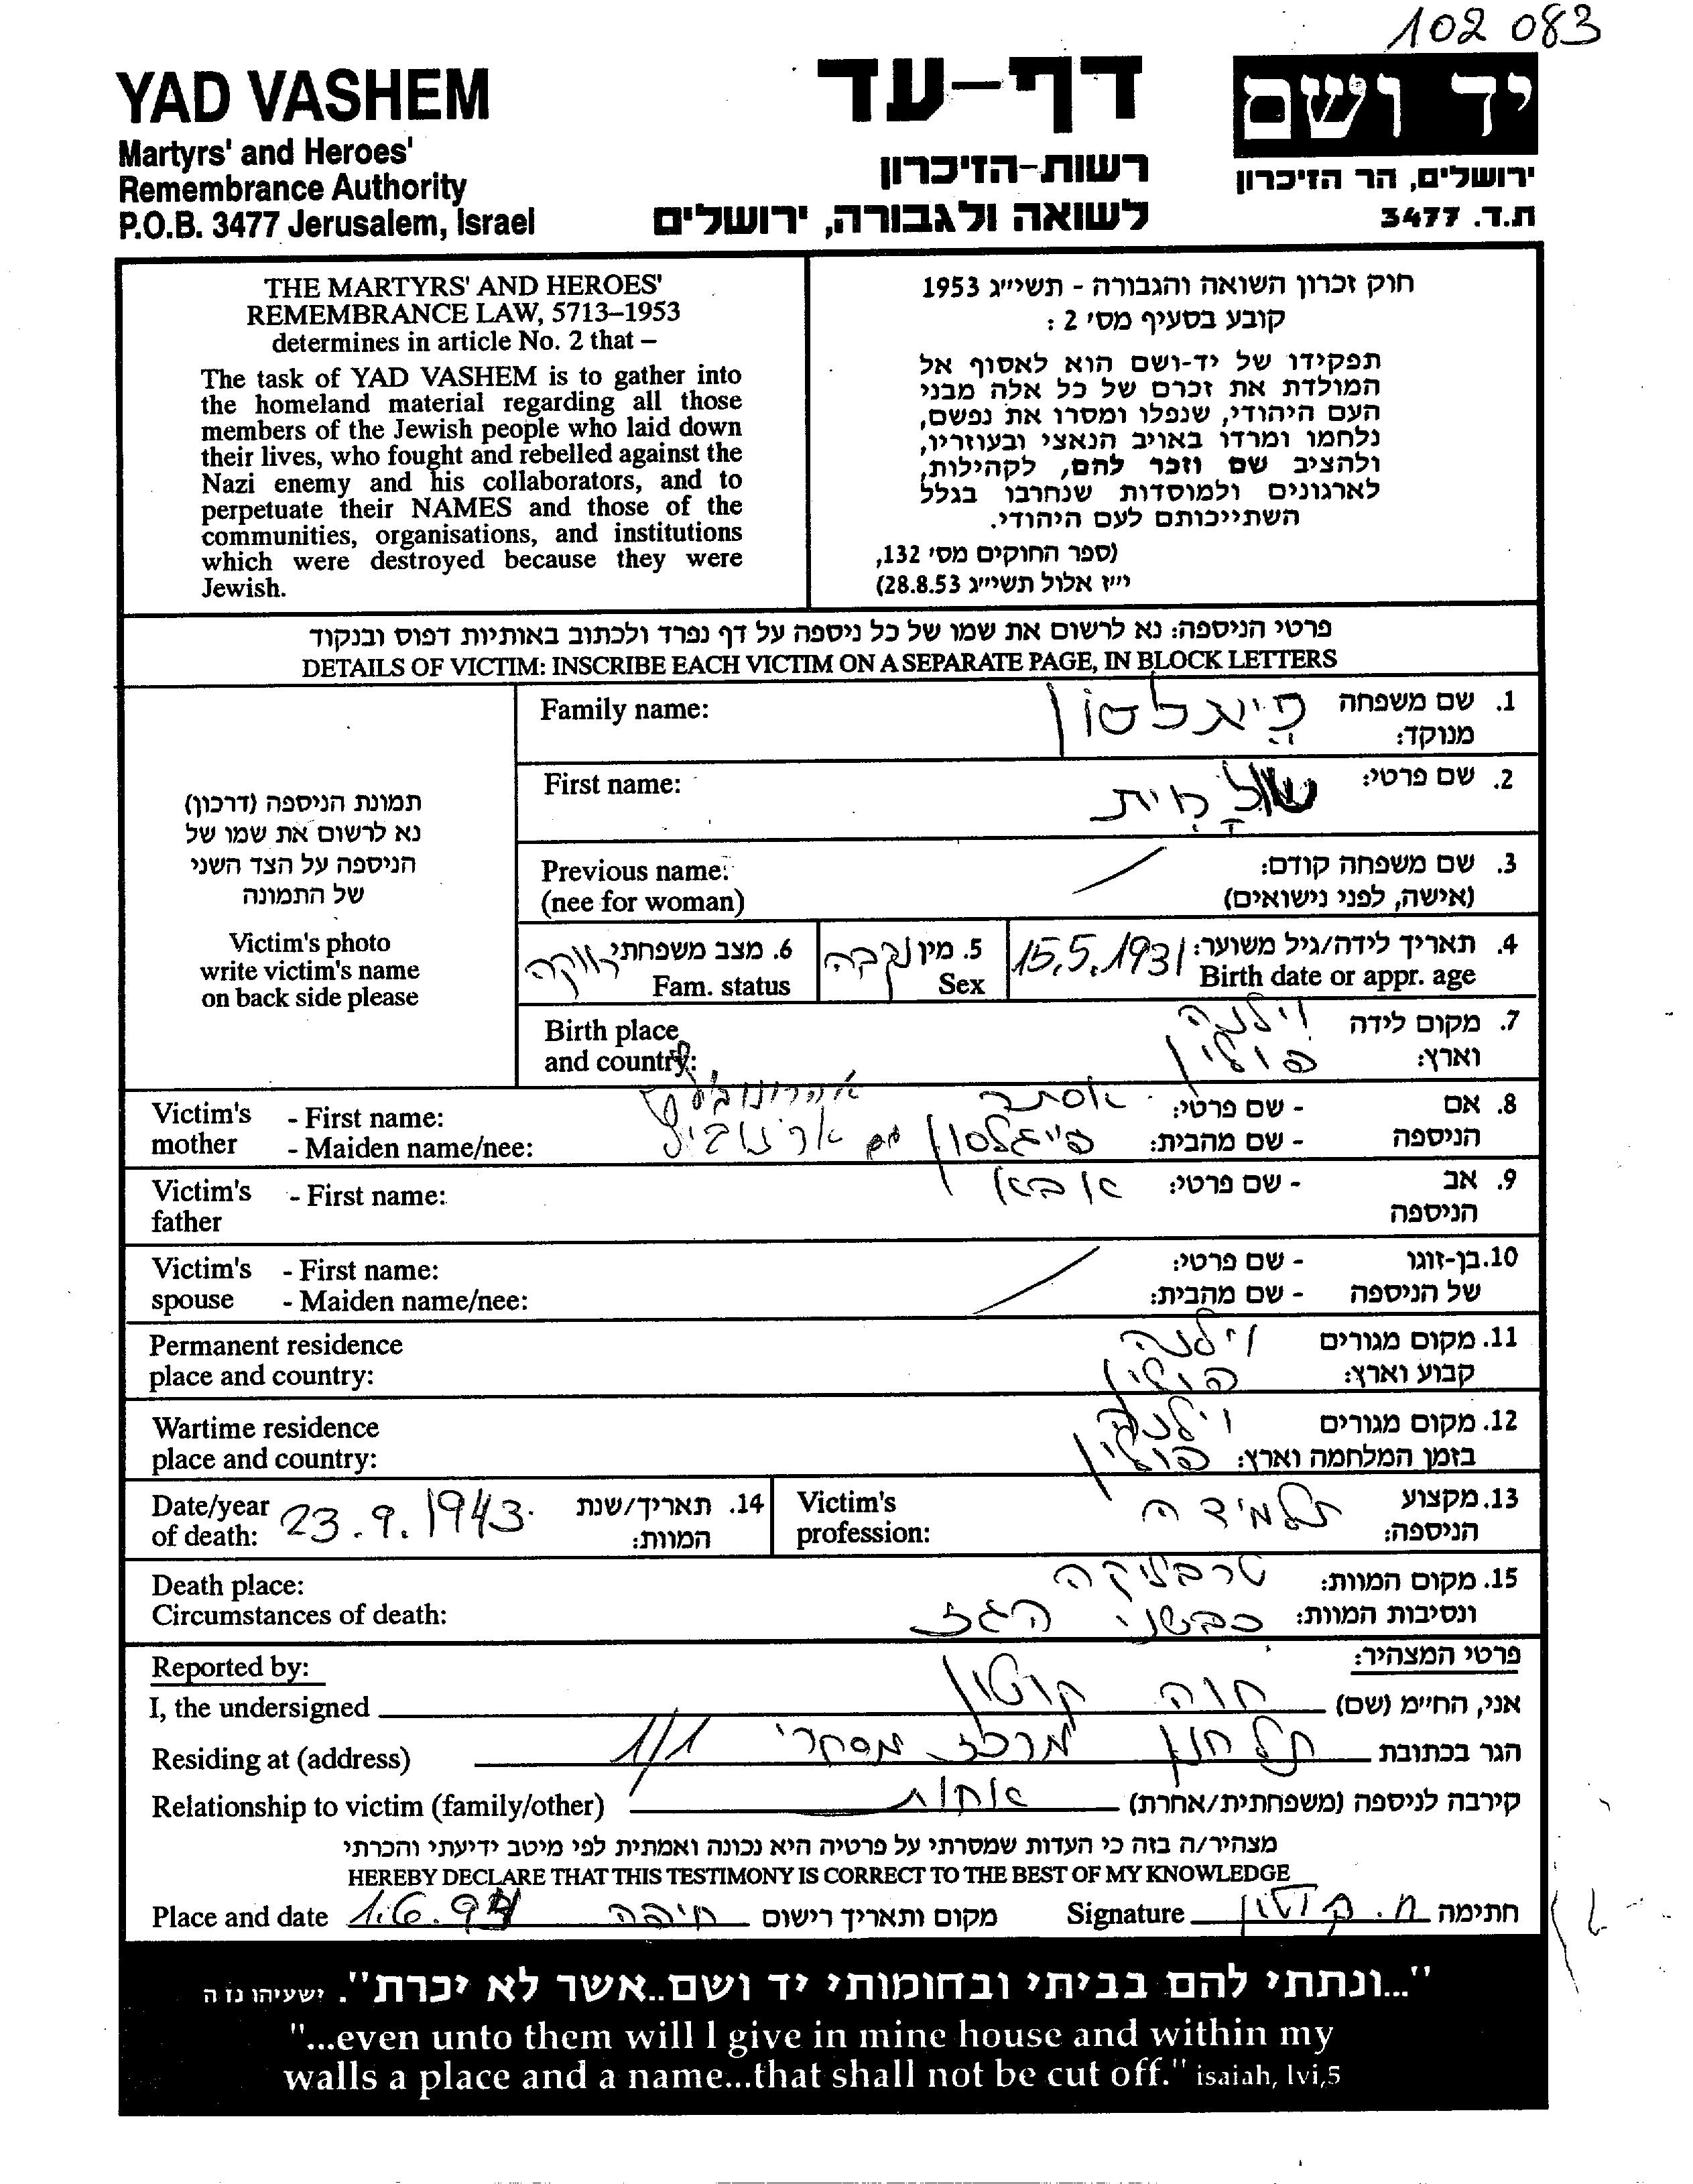 102 083
YAD VASHEM
Martyrs' and Heroes'
Remembrance Authority
P.O.B. 3477 Jerusalem, Israel
דף-עד
רשות-הזיכרון
לשואה ולגבורה, ירושלים
יד ושם
ירושלים, הר הזיכרון
ת.ד. 3477
THE MARTYRS' AND HEROES'
REMEMBRANCE LAW, 5713–1953
determines in article No. 2 that –
The task of YAD VASHEM is to gather into
the homeland material regarding all those
members of the Jewish people who laid down
their lives, who fought and rebelled against the
Nazi enemy and his collaborators, and to
perpetuate their NAMES and those of the
communities, organisations, and institutions
which were destroyed because they were
Jewish.
חוק זכרון השואה והגבורה - תשי״ג 1953
קובע בסעיף מס׳ 2 :
תפקידו של יד-ושם הוא לאסוף אל
המולדת את זכרם של כל אלה מבני
העם היהודי, שנפלו ומסרו את נפשם,
נלחמו ומרדו באויב הנאצי ובעוזריו,
ולהציב שם וזכר להם, לקהילות,
לארגונים ולמוסדות שנחרבו בגלל
השתייכותם לעם היהודי.
(ספר החוקים מס׳ 132,
י״ז אלול תשי״ג 28.8.53)
פרטי הניספה: נא לרשום את שמו של כל ניספה על דף נפרד ולכתוב באותיות דפוס ובנקוד
DETAILS OF VICTIM: INSCRIBE EACH VICTIM ON A SEPARATE PAGE, IN BLOCK LETTERS
תמונת הניספה (דרכון)
נא לרשום את שמו של
הניספה על הצד השני
של התמונה
Victim's photo
write victim's name
on back side please
Family name: פייגלסון 1. שם משפחה
מנוקד:
First name: שולמית 2. שם פרטי:
Previous name: 3. שם משפחה קודם:
(nee for woman) (אישה, לפני נישואים)
4. תאריך לידה/גיל משוער: 15.5.1931 5. מין נקבה 6. מצב משפחתי רווקה
Birth date or appr. age Sex Fam. status
Birth place 7. מקום לידה וילנה
and country: וארץ: פולין
Victim's - First name: 8. אם - שם פרטי: אסתר
mother - Maiden name/nee: הניספה - שם מהבית: פייגלסון
Victim's - First name: 9. אב - שם פרטי: אבא
father הניספה
Victim's - First name: 10. בן-זוגו - שם פרטי:
spouse - Maiden name/nee: של הניספה - שם מהבית:
Permanent residence 11. מקום מגורים וילנה
place and country: קבוע וארץ: פולין
Wartime residence 12. מקום מגורים וילנה
place and country: בזמן המלחמה וארץ: פולין
Date/year 23.9.1943 14. תאריך/שנת
of death: המוות:
Victim's 13. מקצוע תלמידה
profession: הניספה:
Death place: 15. מקום המוות: טרבלינקה
Circumstances of death: ונסיבות המוות: כבשני הגז
Reported by: פרטי המצהיר:
I, the undersigned אני, החי״מ (שם) חוה קוטין
Residing at (address) הגר בכתובת תל חנן מרכז מסחרי 1/1
Relationship to victim (family/other) קירבה לניספה (משפחתית/אחרת) אחות
מצהיר/ה בזה כי העדות שמסרתי על פרטיה היא נכונה ואמתית לפי מיטב ידיעתי והכרתי
HEREBY DECLARE THAT THIS TESTIMONY IS CORRECT TO THE BEST OF MY KNOWLEDGE
Place and date 1.6.94 חיפה מקום ותאריך רישום Signature ח. קוטין חתימה
"...ונתתי להם בביתי ובחומותי יד ושם..אשר לא יכרת". ישעיהו נו ה
"...even unto them will I give in mine house and within my
walls a place and a name...that shall not be cut off." isaiah, lvi,5